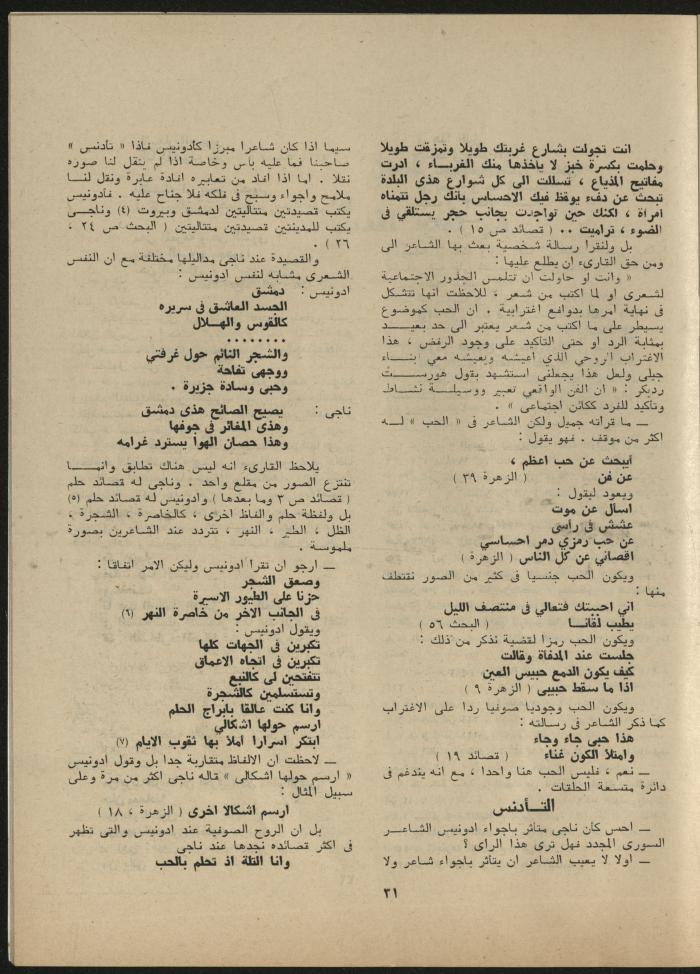 انت تجولت بشارع غربتك طويلا وتمزقت طويلا
وحلمت بكسرة خبز لا ياخذها منك الغربـاء ، ادرت
مفاتيح المذياع ، تسللت الى كل شوارع هذى البلدة
تبحث عن دفء يوقظ فيك الاحساس بانك رجل تتمناه
امراة ، لكنك حين تواجدت بجانب حجر يستلقى فى
الضوء ، تراميت .. ( قصائد ص ١٥ ) .
بل ولنقرا رسالة شخصية بعث بها الشاعر الى
ومن حق القارىء ان يطلع عليها :
« وانت لو حاولت ان تتلمس الجذور الاجتماعية
لشعرى او لما اكتب من شعر ، للاحظت انها تتشكل
فى نهاية امرها بدوافع اغترابية . ان الحب كموضوع
يسيطر على ما اكتب من شعر يعتبر الى حد بعيـد
بمثابة الرد او حتى التأكيد على وجود الرفض ، هذا
الاغتراب الروحي الذي اعيشه ويعيشه معي ابنـاء
جيلى ولعل هذا يجعلنى استشهد بقول هورسـت
رديكر : « ان الفن الواقعي تعبير ووسيلـة نشـاط
وتأكيد للفرد ككائن اجتماعى » .
ــ ما قراته جميل ولكن الشاعر فى « الحب » لـه
اكثر من موقف . فهو يقول :
ايبحث عن حب اعظم ،
عن فن ( الزهرة ٣٩ )
ويعود ليقول :
اسال عن موت
عشش فى راسى
عن حب رمزي دمر احساسي
اقصاني عن كل الناس ( الزهرة )
ويكون الحب جنسيا فى كثير من الصور نقتطف
منها :
اني احببتك فتعالي فى منتصف الليل
يطيب لقانـا ( البحث ٥٦ )
ويكون الحب رمزا لقضية نذكر من ذلك :
جلست عند المدفاة وقالت
كيف يكون الدمع حبيس العين
اذا ما سقط حبيبى ( الزهرة ٩ )
ويكون الحب وجوديا صوفيا ردا على الاغتراب
كما ذكر الشاعر فى رسالته :
هذا حبى جاء وجاء
وامتلأ الكون غناء ( قصائد ١٩ )
ــ نعم ، فليس الحب هنا واحدا ، مع انه يندغم فى
دائرة متسعة الحلقات .
التـأدنس
ــ احس كأن ناجى متأثر باجواء ادونيس الشاعـر
السورى المجدد فهل ترى هذا الراى ؟
ــ اولا لا يعيب الشاعر ان يتأثر باجواء شاعر ولا
سيما اذا كان شاعرا مبرزا كأدونيس فاذا « تأدنس »
صاحبنا فما عليه باس وخاصة اذا لم ينقل لنا صوره
نقلا . اما اذا افاد من تعابيره افادة عابرة ونقل لنـا
ملامح واجواء وسبح فى فلكه فلا جناح عليه . فأدونيس
يكتب قصيدتين متتاليتين لدمشق وبيروت (٤) وناجـى
يكتب للمدينتين قصيدتين متتاليتين ( البحث ص ٢٤ ،
٢٦ ) .
والقصيدة عند ناجى مداليلها مختلفة مع ان النفس
الشعرى مشابه لنفس ادونيس :
ادونيس : دمشق
الجسد العاشق فى سريره
كالقوس والهـلال
........
والشجر النائم حول غرفتي
ووجهى تفاحة
وحبى وسادة جزيرة .
ناجى : يصيح الصائح هذى دمشق
وهذى المغائر فى جوفها
وهذا حصان الهوا يسترد غرامه
يلاحظ القارىء انه ليس هناك تطابق وانمـا
تنتزع الصور من مقلع واحد . وناجى له قصائد حلم
( قصائد ص ٣ وما بعدها ) وادونيس له قصائد حلم (٥)
بل ولفظة حلم والفاظ اخرى ، كالخاصرة ، الشجرة ،
الظل ، الطير ، النهر ، تتردد عند الشاعرين بصورة
ملموسة .
ــ ارجو ان تقرا ادونيس وليكن الامر اتفاقا :
وصعق الشجر
حزنا على الطيور الاسيرة
فى الجانب الاخر من خاصرة النهر (٦)
ويقول ادونيس :
تكبرين فى الجهات كلها
تكبرين فى اتجاه الاعماق
تتفتحين لى كالنبع
وتستسلمين كالشجرة
وانا كنت عالقا بابراج الحلم
ارسم حولها اشكالي
ابتكر اسرارا املأ بها ثقوب الايام (٧)
ــ لاحظت ان الالفاظ متقاربة جدا بل وقول ادونيس
« ارسم حولها اشكالى » قاله ناجى اكثر من مرة وعلى
سبيل المثال :
ارسم اشكالا اخرى ( الزهرة ، ١٨ )
بل ان الروح الصوفية عند ادونيس والتى تظهر
فى اكثر قصائده نجدها عند ناجى
وانا التلة اذ تحلم بالحب
٣١